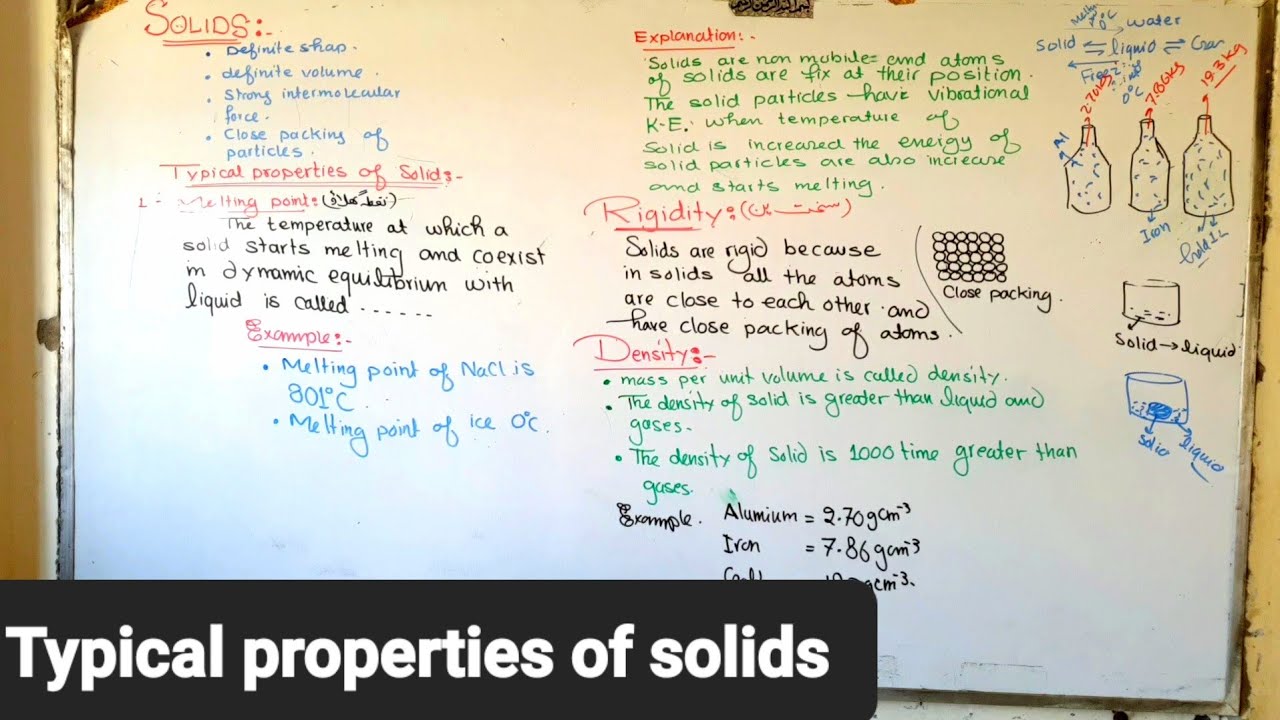 بسم الله الرحمن الرحيم
SOLIDS:-
• Definite shap.
• definite volume.
• Strong intermolecular
force.
• Close packing of
particles.
Typical properties of Solids:-
1:- Melting point:
The temperature at which a
solid starts melting and coexist
in dynamic equilibrium with
liquid is called ......
Example:-
• Melting point of NaCl is
801°C.
• Melting point of ice 0°C.
Explanation:-
Solids are non mobile and atoms
of solids are fix at their position.
The solid particles have vibrational
K.E. when temperature of
Solid is increased the energy of
solid particles are also increase
and starts melting.
Rigidity:-
Solids are rigid because
in solids all the atoms
are close to each other and
have close packing of atoms.
Close packing.
Density:-
• mass per unit volume is called density.
• The density of solid is greater than liquid and
gases.
• The density of Solid is 1000 time greater than
gases.
Example. Alumium = 2.70gcm⁻³
Iron = 7.86gcm⁻³
gcm⁻³.
0°C water
Solid ⇌ liquid ⇌
0°C
2.70kg 7.86kg 19.3kg
Al
Iron
Solid→liquid
Solid liquid
Typical properties of solids